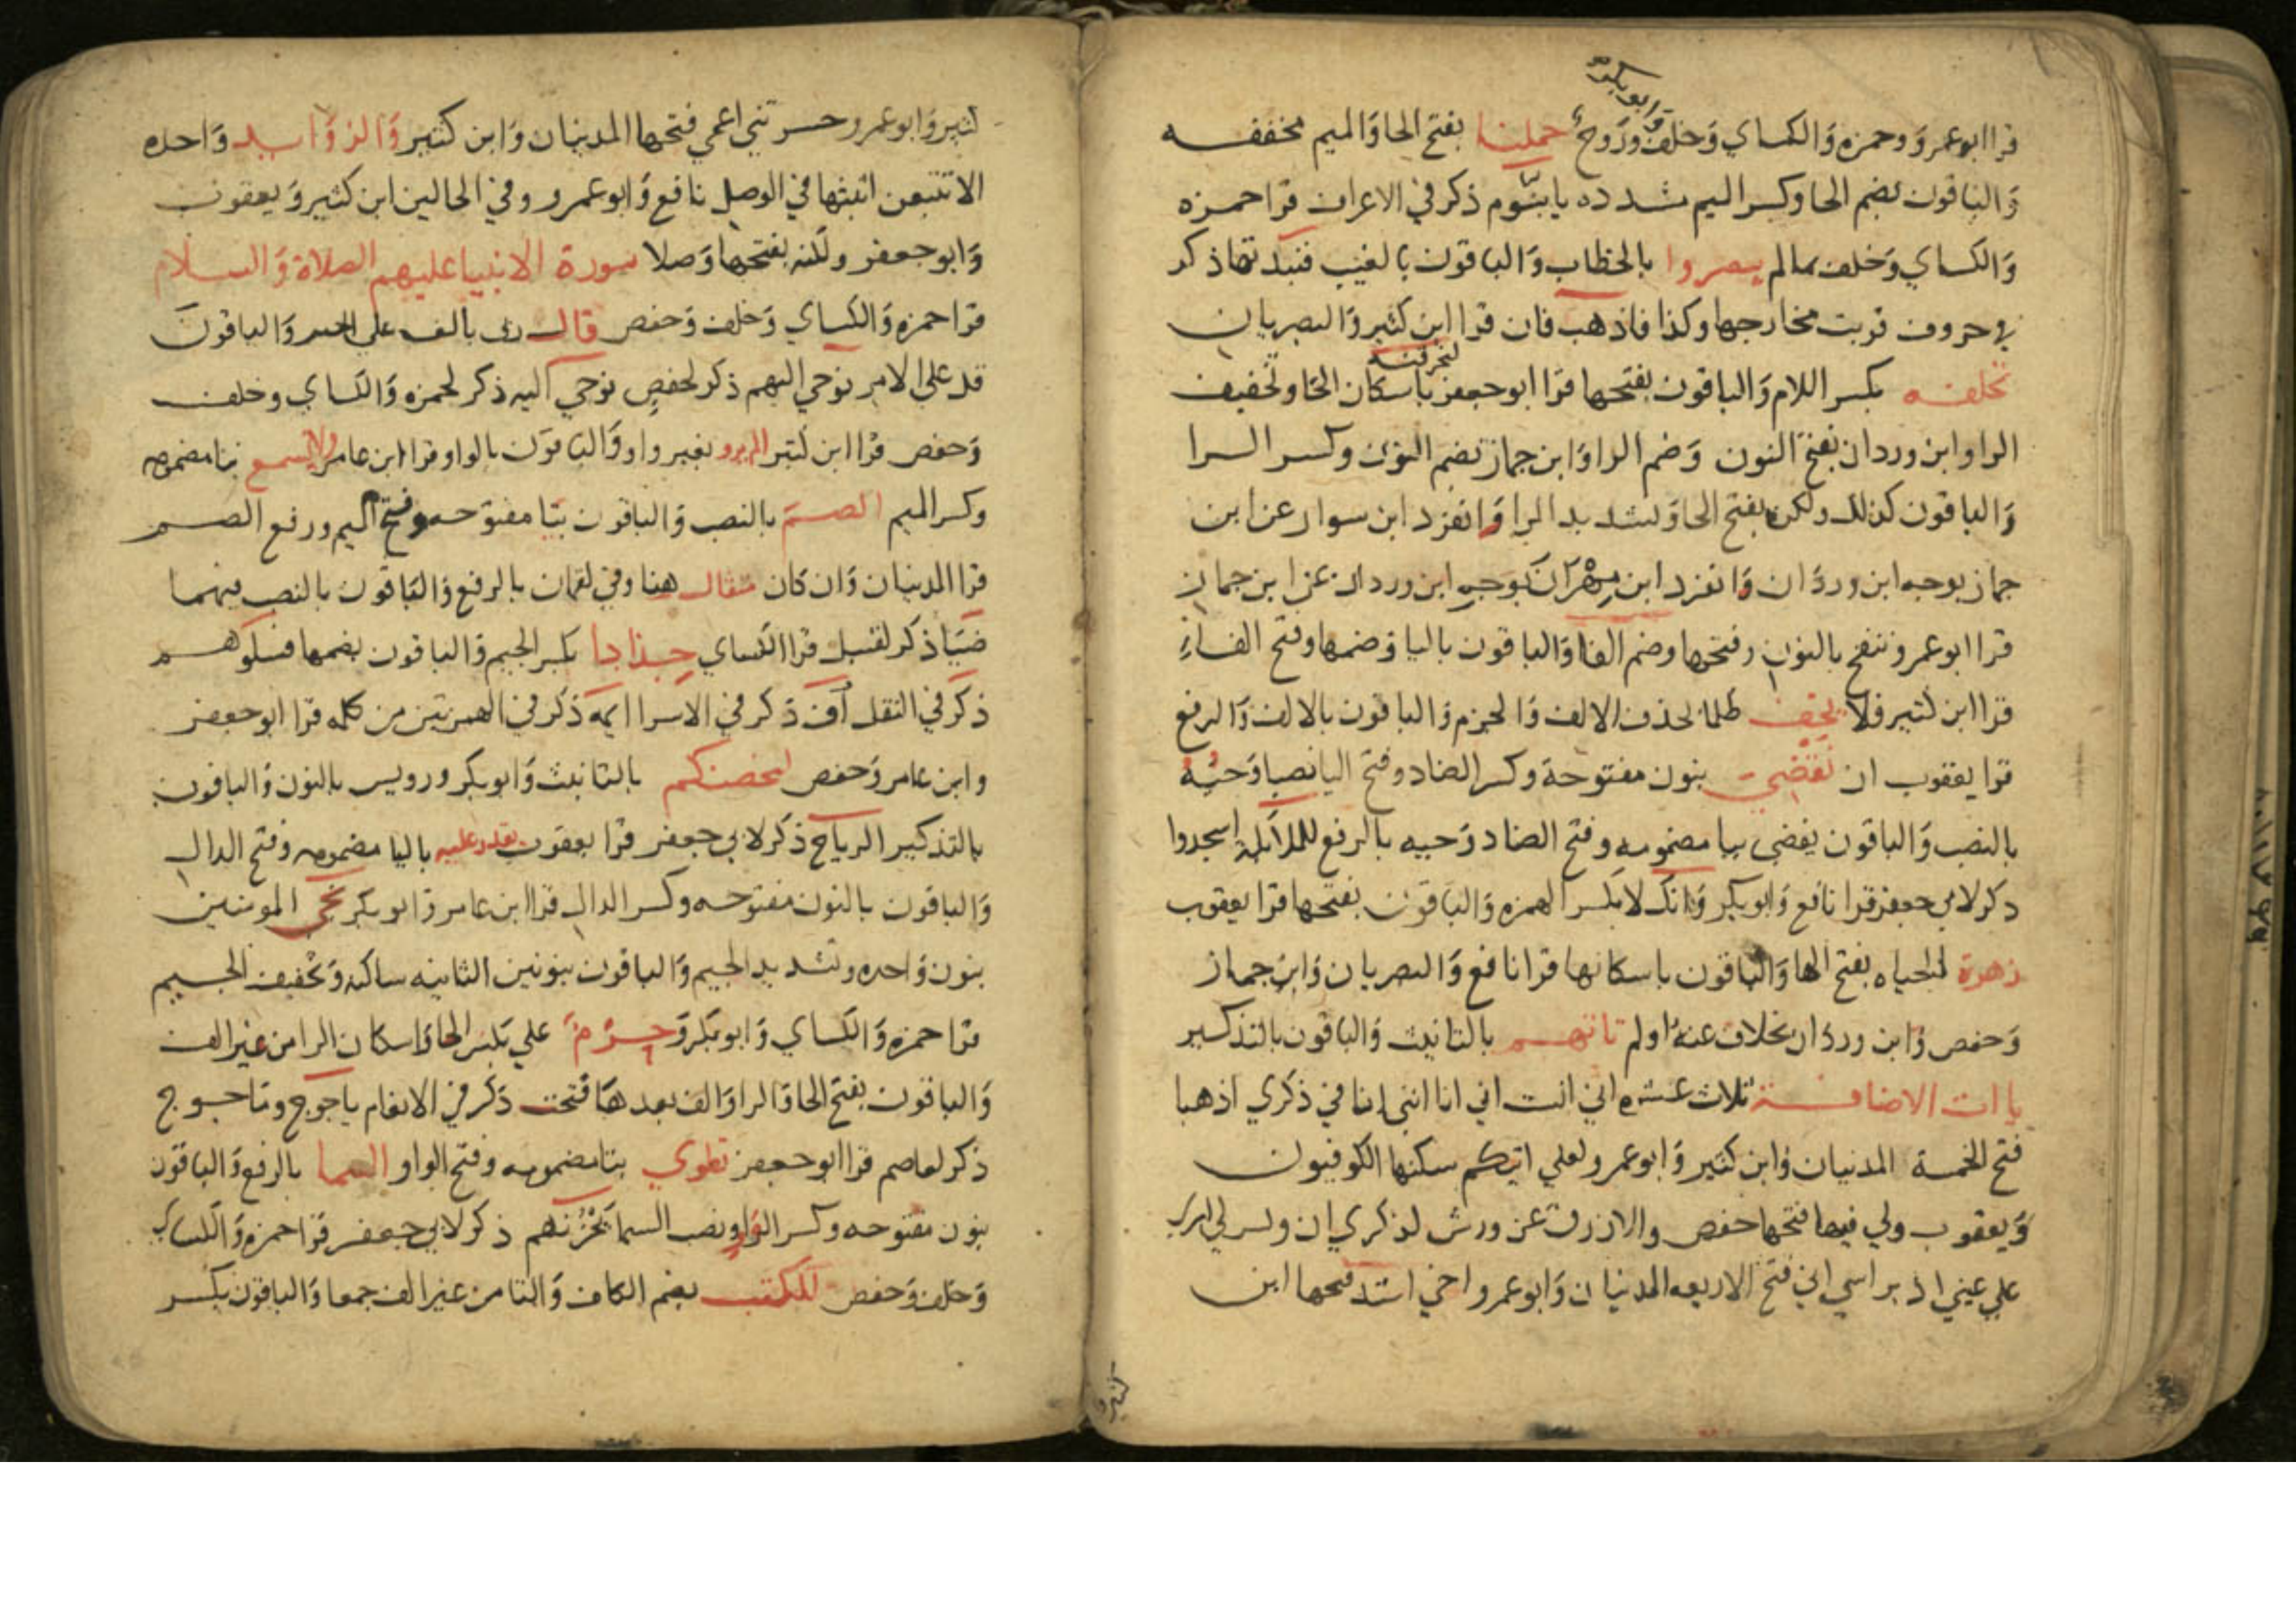 وابو بكر
قرا ابو عمرو وحمزه والكساي وخلف وروح حملنا بفتح الحا والميم مخففه
والباقون بضم الحا وكسر الميم مشدده يا بنوم ذكر في الاعراف قرا حمزه
والكساي وخلف بما لم يبصروا بالخطاب والباقون بالغيب فنبذتها ذكر
في حروف قربت مخارجها وكذا فاذهب فان قرا ابن كثير والبصريان
تخلفه بكسر اللام والباقون بفتحها قرا ابو جعفر لنحرقنه باسكان الحا وتخفيف
الرا وابن وردان بفتح النون وضم الرا وابن جماز بضم النون وكسر الرا
والباقون كذلك ولكن بفتح الحا وتشديد الرا وانفرد ابن سوار عن ابن
جماز بوجه ابن وردان وانفرد ابن مهران بوجه ابن وردان عن ابن جماز
قرا ابو عمرو ننفخ بالنون وفتحها وضم الفا والباقون باليا وضمها وفتح الفاء
قرا ابن كثير فلا يخف ظلما بحذف الالف والجزم والباقون بالالف والرفع
قرا يعقوب ان نقضي بنون مفتوحة وكسر الضاد وفتح اليا نصبا وحيه
بالنصب والباقون يقضى بيا مضمومه وفتح الضاد وحيه بالرفع للملائكة اسجدوا
ذكر لابي جعفر قرا نافع وابو بكر وانك لا بكسر الهمزه والباقون بفتحها قرا يعقوب
زهرة الحياه بفتح الها والباقون باسكانها قرا نافع والبصريان وابن جماز
وحفص وابن وردان بخلاف عنه اولم تاتهم بالتانيث والباقون بالتذكير
ياات الاضافة ثلاث عشره اني انست اني انا انني انا في ذكري اذهبا
فتح الخمسة المدنيان وابن كثير وابو عمرو لعلي اتيكم سكنها الكوفيون
ويعقوب ولي فيها فتحها حفص والازرق عن ورش لذكري ان ويسر لي امري
علي عيني اذ براسي اني فتح الاربعه المدنيان وابو عمرو اخي اشدد فتحها ابن
كثير و
كثير وابو عمرو حشرتني اعمي فتحها المدنيان وابن كثير والزوايد واحده
الا تتبعن اثبتها في الوصل نافع وابو عمرو وفي الحالين ابن كثير ويعقوب
وابو جعفر ولكنه يفتحها وصلا سورة الانبيا عليهم الصلاة والسلام
قرا حمزه والكساي وخلف وحفص قال ربي بالف علي الخبر والباقون
قل علي الامر نوحي اليهم ذكر لحفص نوحي اليه ذكر لحمزه والكساي وخلف
وحفص قرا ابن كثير الم ير بغير واو والباقون بالواو قرا ابن عامر ولا يسمع بتا مضمومه
وكسر الميم الصم بالنصب والباقون بيا مفتوحه وفتح الميم ورفع الصم
قرا المدنيان وان كان مثقال هنا وفي لقمان بالرفع والباقون بالنصب فيهما
ضيا ذكر لقنبل قرا الكساي جذاذا بكسر الجيم والباقون بضمها فسلوهم
ذكر في النقل اف ذكر في الاسرا ايمه ذكر في الهمزتين من كلمه قرا ابو جعفر
وابن عامر وحفص لتحصنكم بالتانيث وابو بكر ورويس بالنون والباقون
بالتذكير الرياح ذكر لابي جعفر قرا يعقوب يقدر عليه باليا مضمومه وفتح الدال
والباقون بالنون مفتوحه وكسر الدال قرا ابن عامر وابو بكر نجي المومنين
بنون واحده وتشديد الجيم والباقون بنونين الثانيه ساكنه وتخفيف الجيم
قرا حمزه والكساي وابو بكر وحرم علي بكسر الحا واسكان الرا من غير الف
والباقون بفتح الحا والرا والف بعدها فتحت ذكر في الانعام ياجوج وماجوج
ذكر لعاصم قرا ابو جعفر تطوي بتا مضمومه وفتح الواو السما بالرفع والباقون
بنون مفتوحه وكسر الواو ونصب السما يحزنهم ذكر لابي جعفر قرا حمزه والكساي
وخلف وحفص للكتب بضم الكاف والتا من غير الف جمعا والباقون بكسر